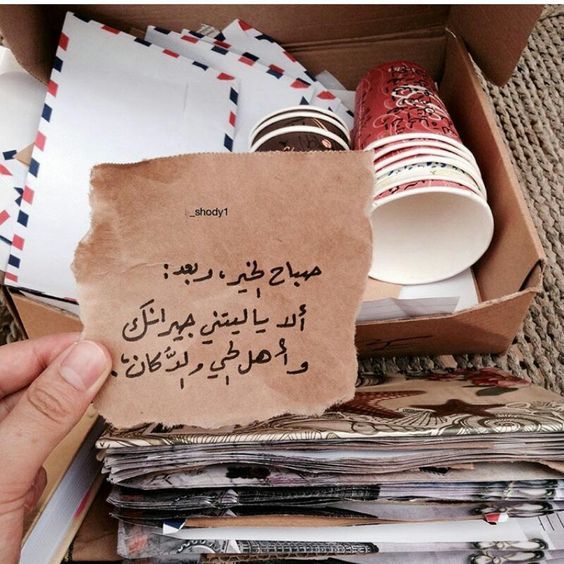 _shody1
صباح الخير، وبعد:
ألا ياليتني جيرانك
وأهل الحي والدَّكان،.